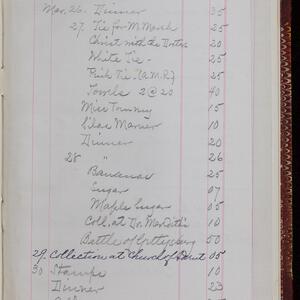 Mar. 26. Dinner 35
27. Tie for M. Marsh 25
Christ with the Doctors 20
White Tie - 25
Pink Tie (A.M.R.) 25
Towels 2 @ 20 40
Miss Tommy 15
Silas Marner 10
Dinner 20
28 " 26
Bananas 25
Sugar 07
Maple Sugar 05
Coll. at Dr. 10
Battle of Gettysburg 50
29. Collection at Church of 05
30 Stamps 10
Dinner 23